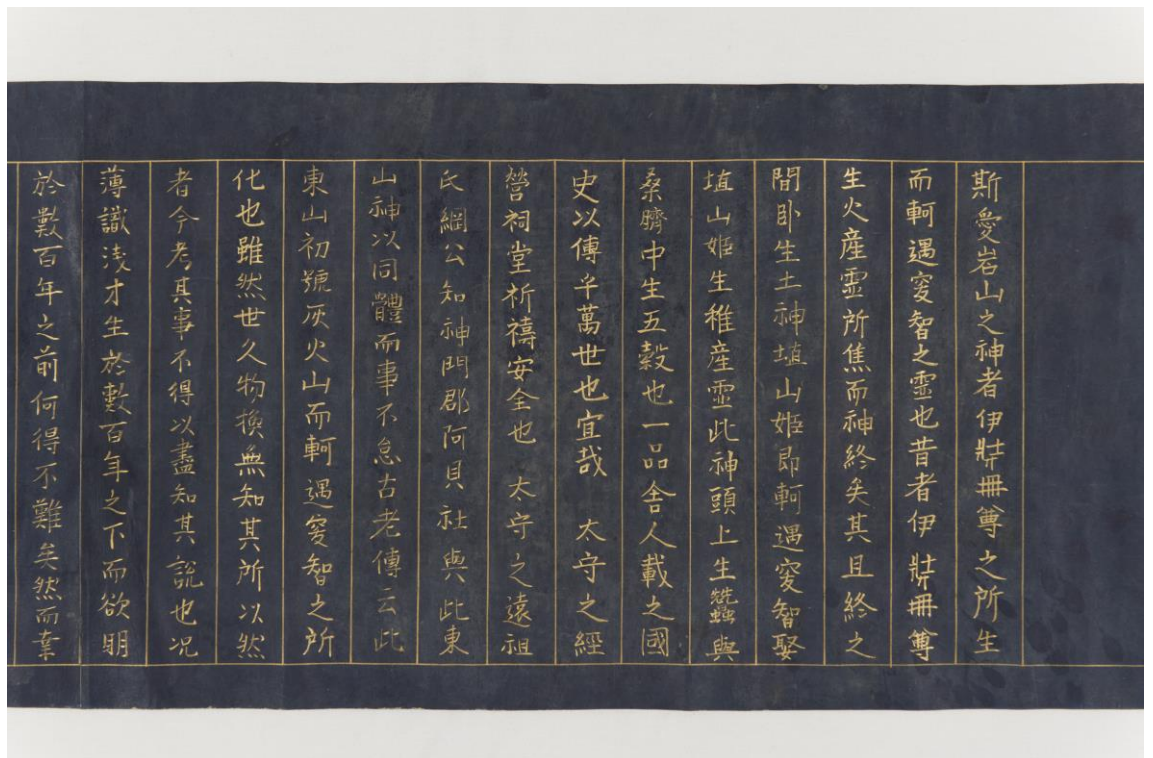 斯愛岩山之神者伊弉冊尊之所生
而軻遇突智之霊也昔者伊弉冊尊
生火産霊所焦而神終矣其且終之
間卧生土神埴山姬即軻遇突智娶
埴山姬生稚産霊此神頭上生蠶與
桑臍中生五穀也一品舎人載之國
史以傳千萬世也宜哉　太守之經
營祠堂祈禱安全也　太守之遠祖
氏綱公知神門郡阿貝社與此東
山神以同體而事不怠古老傳云此
東山初號灰火山而軻遇突智之所
化也雖然世久物換無知其所以然
者今考其事不得以盡知其說也况
薄識淺才生於數百年之下而欲明
於數百年之前何得不難矣然而業